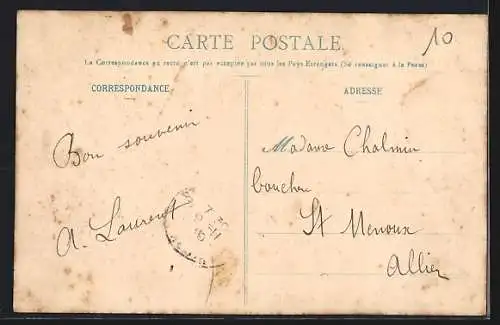 CARTE POSTALE
10
La Correspondance au recto n'est pas acceptée par tous les Pays Etrangers (Se renseigner à la Poste)
CORRESPONDANCE
Bon souvenir.
A. Laurent
ADRESSE
Madame Chalmin
boucher
St Menoux
Allier